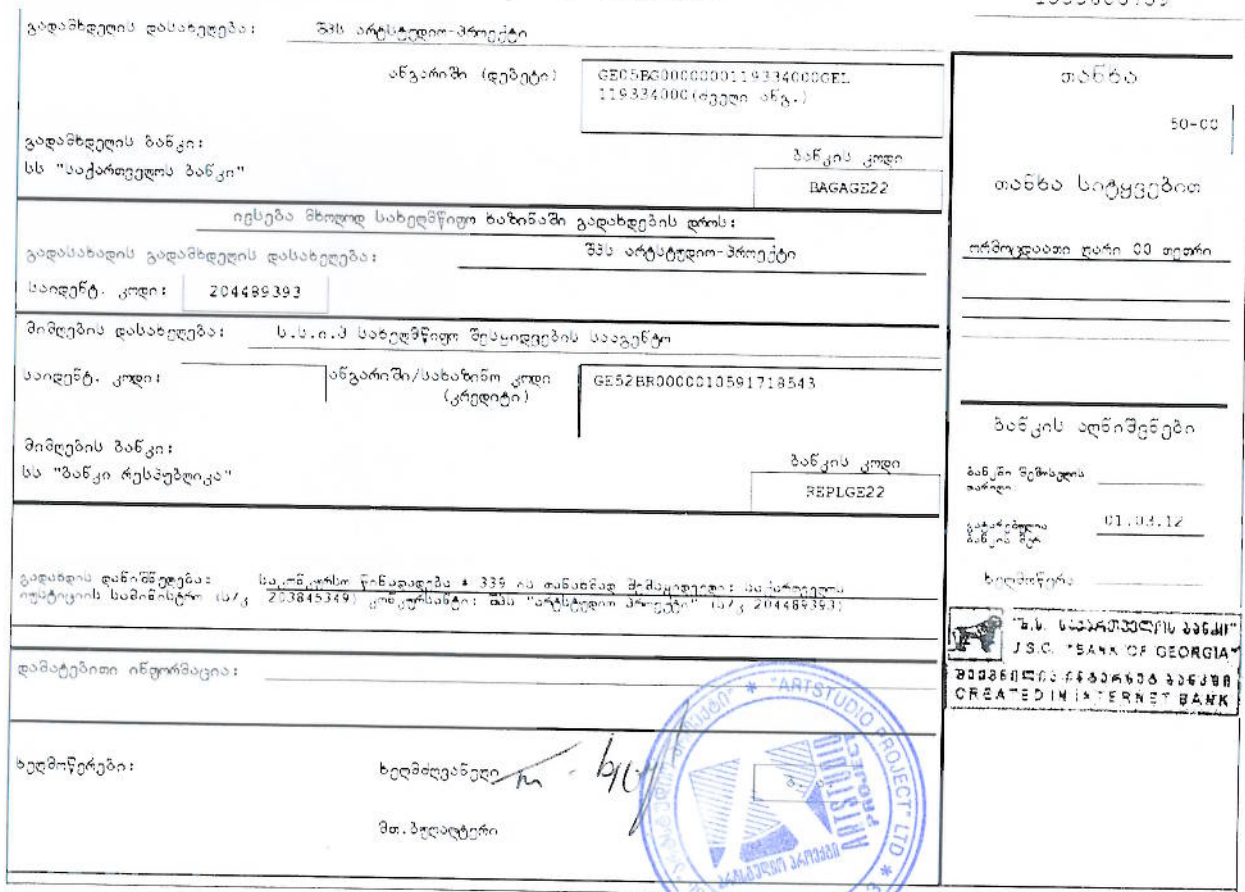 გადამხდელის დასახელება: შპს არტსტუდიო-პროექტი
ანგარიში (დებეტი) GE05BG0000000119334000GEL
119334000(ძველი ანგ.)
გადამხდელის ბანკი:
სს "საქართველოს ბანკი"
ბანკის კოდი
BAGAGE22
ივსება მხოლოდ სახელმწიფო ხაზინაში გადახდების დროს:
გადასახადის გადამხდელის დასახელება: შპს არტსტუდიო-პროექტი
საიდენტ. კოდი: 204489393
მიმღების დასახელება: ს.ს.ი.პ სახელმწიფო შესყიდვების სააგენტო
საიდენტ. კოდი: ანგარიში/სახაზინო კოდი GE52BR0000010591718543
(კრედიტი)
მიმღების ბანკი:
სს "ბანკი რესპუბლიკა"
ბანკის კოდი
REPLGE22
გადახდის დანიშნულება: საკონკურსო წინადადება # 339 ის თანახმად შემსყიდველი: საქართველოს
იუსტიციის სამინისტრო (ს/კ 203845349) კონკურსანტი: შპს "არტსტუდიო პროექტი" (ს/კ 204489393)
დამატებითი ინფორმაცია:
ხელმოწერები: ხელმძღვანელი
მთ.ბუღალტერი
ბ.ა.
"ARTSTUDIO PROJECT" LTD
ARTSTUDIO
PROJECT
თანხა
50-00
თანხა სიტყვებით
ორმოცდაათი ლარი 00 თეთრი
ბანკის აღნიშვნები
ბანკში შემოსვლის
თარიღი:
გატარებულია
ბანკის მერ 01.03.12
ხელმოწერა
"ს.ს. საქართველოს ბანკი"
J.S.C. "BANK OF GEORGIA"
შექმნილია ინტერნეტ ბანკში
CREATED IN INTERNET BANK